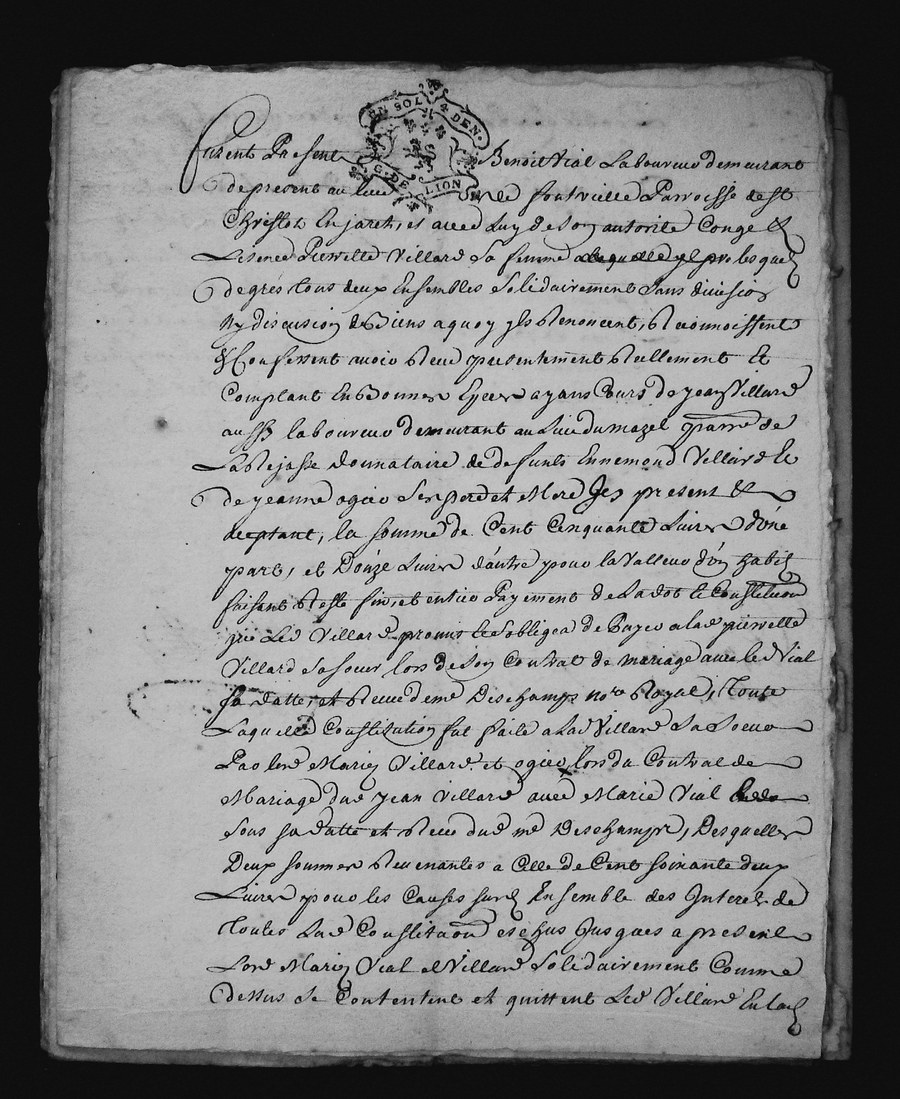 EN SOL 4 DEN.
G. DE LION
furent Present Benoit Vial Laboureur demeurant
de present au lieu de fontvieille Parroisse de St
Christot En jarets, et avec Luy de Son autorité Congé &
Licence Pierrette Villard Sa femme lesquels
de grés tous deux Ensembles Solidairement Sans division
Ny discusion de Biens a quoy yls Renoncent, Reconnoissent
& Confessent avoir Receu presentement Reellement Et
Comptant En Bonnes Epeces ayans Cours de jean Villard
aussy laboureur demeurant au Lieu du mazel parre de
La Rejasse donnataire de defunts Ennemond Villard Et
de jeanne ogier Ses pere et Mere Jcy present &
acceptant, la somme de Cent Cinquante Livres d'une
part, et Douze Livres d'autre pour la Valleur d'un habit
faisant Reste fin, et entier Payement de La dot et Constituon
que Led Villard promis et s'obligea de Payer a lad pierrette
Villard Sa soeur lors de Son Contrat de mariage avec led Vial
sa datte et Receu de me Deschamps nore Royal, Toute
Laquelle Constitution fut faite a Lad Villard Sa Soeur
Par les Mariez Villard et ogier lors du Contrat de
Mariage dud jean Villard avec Marie Vial
Sous sa datte et Receu dud me Deschamps, Desquelles
Deux sommes Revenantes a Celle de Cent soixante deux
Livres pour les Causes surd Ensemble des Interets de
Toutes Lad Constituon eschus Jusques a present
Lesd Mariez Vial et Villard Solidairement Comme
dessus Se Contentent et quittent Led Villard